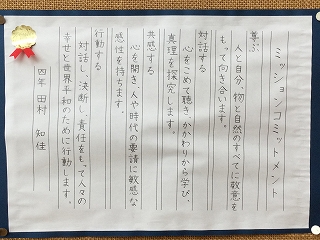 ミッションコミットメント
尊ぶ
人と自分、物と自然のすべてに敬意を
もって向き合います。
対話する
心をこめて聴き、かかわりから学び、
真理を探究します。
共感する
心を開き、人や時代の要請に敏感な
感性を持ちます。
行動する
対話し、決断し、責任をもって人々の
幸せと世界平和のために行動します。
四年 田村 知佳